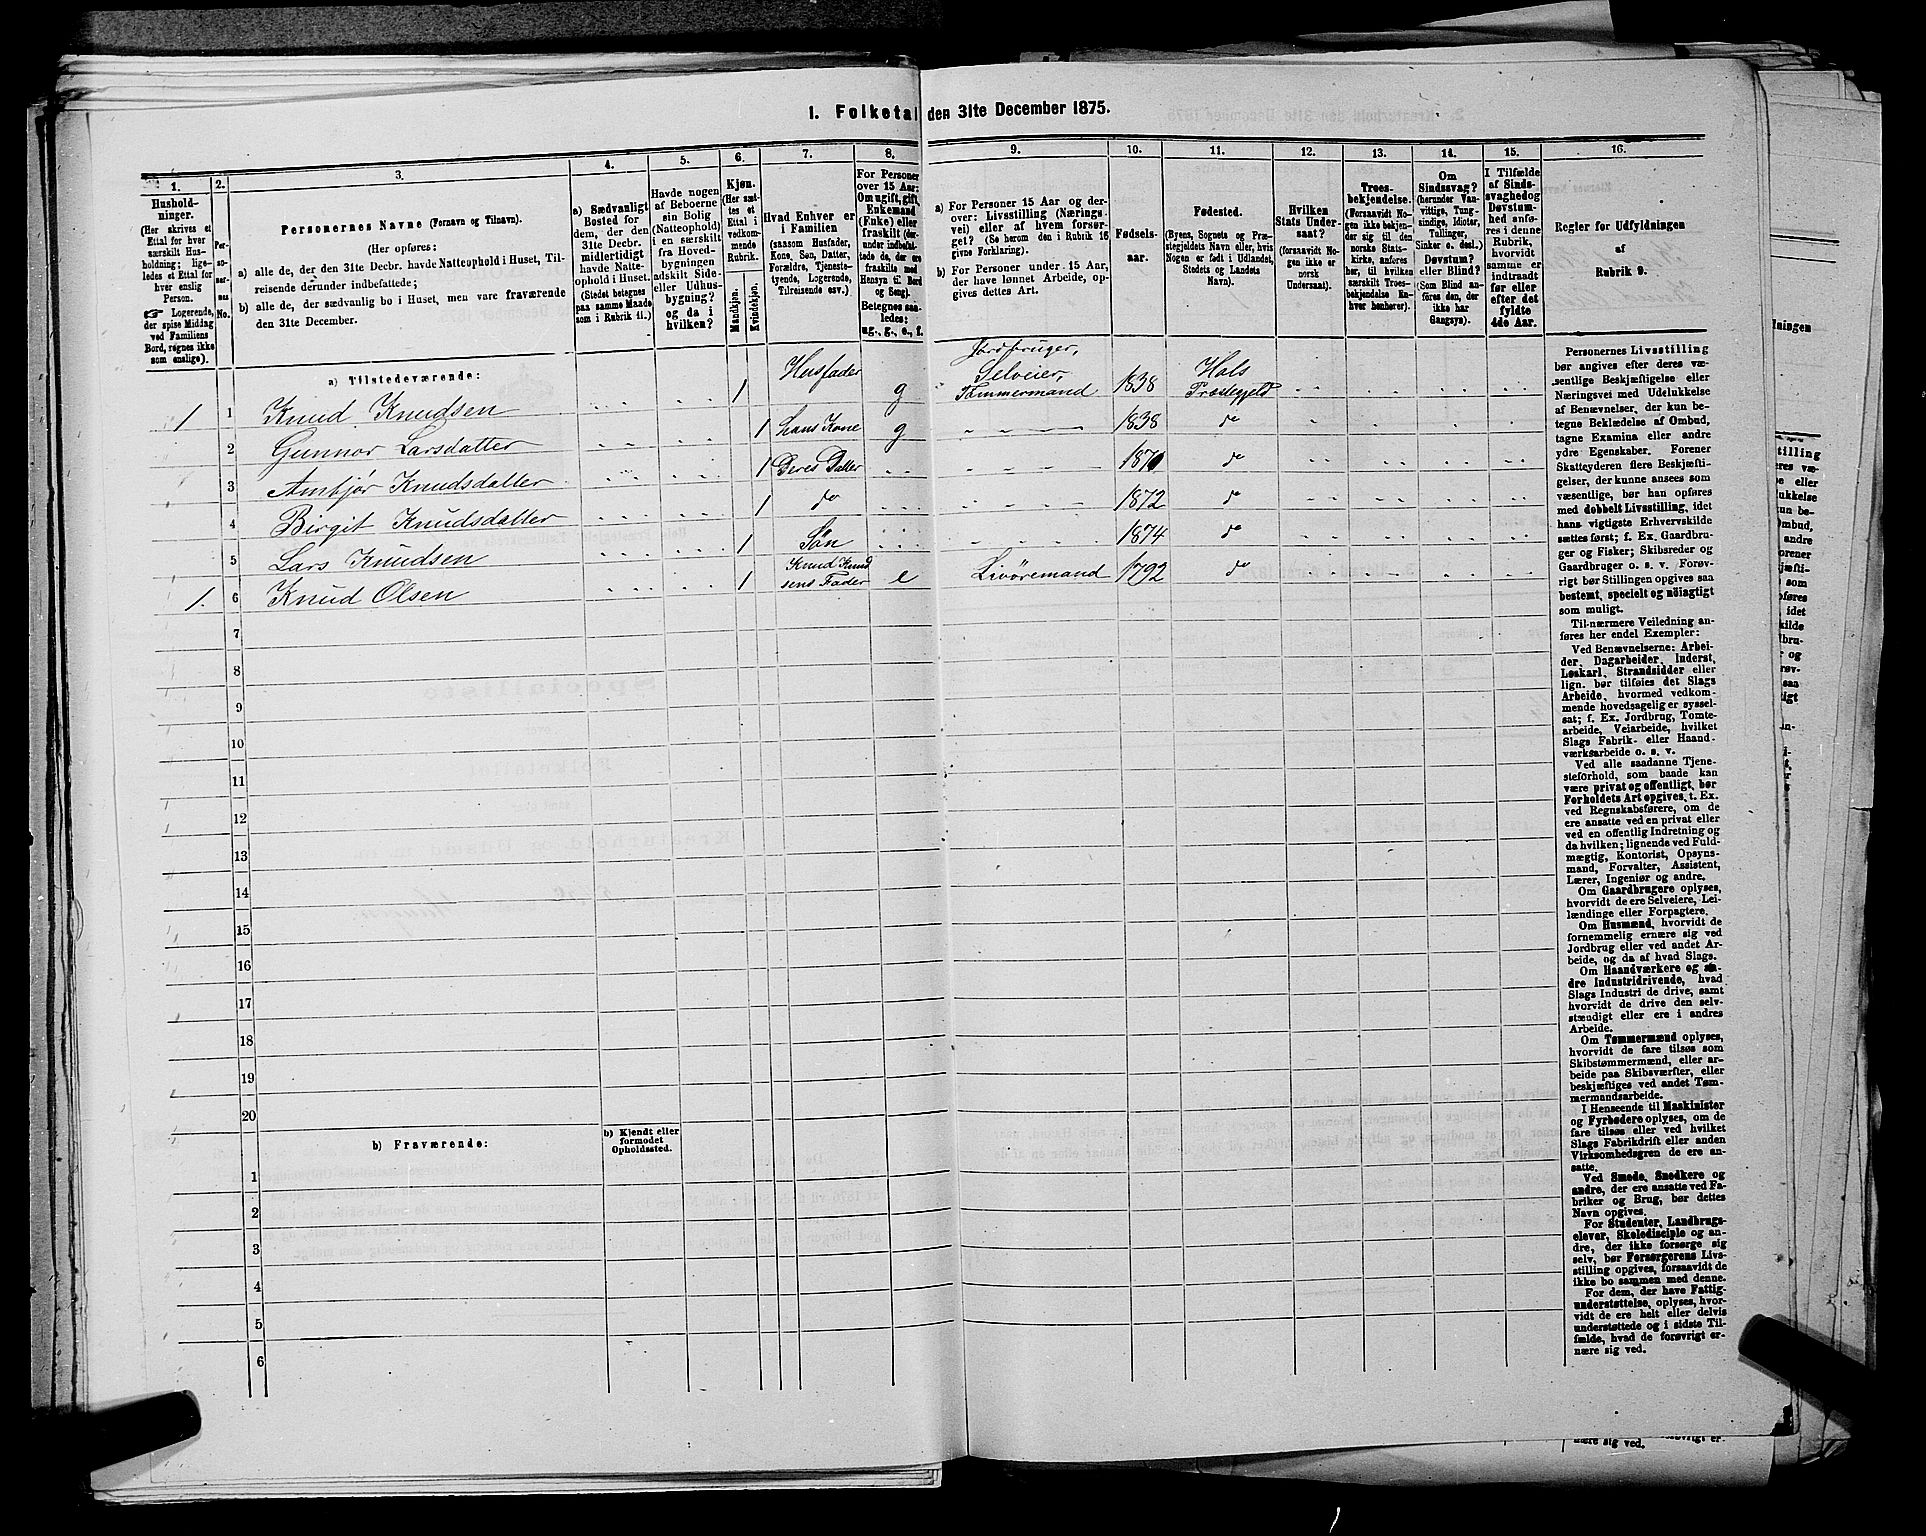 1. Folketal den 31te December 1875.
1. 2. 3. 4. 5. 6. 7. 8. 9. 10. 11. 12. 13. 14. 15. 16.
Hushold-
ninger.
(Her skrives et
Ettal for hver
særskilt Hus-
holdning; lige-
ledes et Ettal for
hver enslig
Person.
☞ Logerende,
der spise Middag
ved Familiens
Bord, regnes ikke
som enslige).
Per-
so-
ner-
nes
No.
Personernes Navne (Fornavn og Tilnavn).
(Her opføres:
a) alle de, der den 31te Decbr. havde Natteophold i Huset, Til-
reisende derunder indbefattede;
b) alle de, der sædvanlig bo i Huset, men vare fraværende
den 31te December.
a) Sædvanligt
Bosted for
dem, der den
31te Decbr.
midlertidigt
havde Natte-
ophold i Huset.
(Stedet betegnes
paa samme Maade
som i Rubrik 11.)
Havde nogen
af Beboerne
sin Bolig
(Natteophold)
i en særskilt
fra Hoved-
bygningen
adskilt Side-
eller Udhus-
bygning?
og da i
hvilken?
Kjøn.
(Her sæt-
tes et
Ettal i
vedkom-
mende
Rubrik.
Mandkjøn.
Kvindekjøn.
Hvad Enhver er
i Familien
(saasom Husfader,
Kone, Søn, Datter,
Forældre, Tjeneste-
tyende, Logerende,
Tilreisende osv.)
For Personer
over 15 Aar:
Om ugift, gift,
Enkemand
(Enke) eller
fraskilt (der-
under indbefat-
tede de, der ere
fraskilte med
Hensyn til Bord
og Seng).
Betegnes saa-
ledes:
ug., g., e., f.
a) For Personer 15 Aar og der-
over: Livsstilling (Nærings-
vei) eller af hvem forsør-
get? (Se herom den i Rubrik 16
givne Forklaring).
b) For Personer under 15 Aar,
der have lønnet Arbeide, op-
gives dettes Art.
Fødsels-
aar.
Fødested.
(Byens, Sognets og Præ-
stegjeldets Navn eller, hvis
Nogen er født i Udlandet,
Stedets og Landets
Navn).
Hvilken
Stats Under-
saat?
(forsaavidt No-
gen ikke er
norsk
Undersaat).
Troes-
bekjendelse.
(Forsaavidt No-
gen ikke bekjen-
der sig til den
norske Stats-
kirke, anføres
her, til hvilken
særskilt Troes-
bekjendelse En-
hver henhører).
Om
Sindssvag?
(herunder Van-
vittige, Tung-
sindige, Idioter,
Tullinger,
Sinker o. desl.)
Døvstum?
eller Blind?
(Som Blind an-
føres den, der
ikke har
Gangsyn).
I Tilfælde
af Sinds-
svaghed og
Døvstum-
hed anfø-
res i denne
Rubrik,
hvorvidt
samme er
indtraadt
før eller
efter det
fyldte
4de Aar.
Regler for Udfyldningen
af
Rubrik 9.
a) Tilstedeværende:
1 1 Knud Knudsen 1 Husfader g Jordbruger, Selveier, Tømmermand 1838 Hols Præstegjeld
2 Gunnor Larsdatter 1 hans Kone g 1838 do
3 Ambjør Knudsdatter 1 Deres Datter 1870 do
4 Birgit Knudsdatter 1 do 1872 do
5 Lars Knudsen 1 Søn 1874 do
1. 6 Knud Olsen 1 Knud Knudsens Fader e Livøremand 1792 do
7
8
9
10
11
12
13
14
15
16
17
18
19
20
b) Fraværende:
b) Kjendt eller
formodet
Opholdssted.
1
2
3
4
5
6
Personernes Livsstilling
bør angives efter deres væ-
sentlige Beskjæftigelse eller
Næringsvei med Udelukkelse
af Benævnelser, der kun be-
tegne Beklædelse af Ombud,
tagne Examina eller andre
ydre Egenskaber. Forener
Skatteyderen flere Beskjæfti-
gelser, der kunne ansees som
væsentlige, bør han opføres
med dobbelt Livsstilling, idet
hans vigtigste Erhvervskilde
sættes først; f. Ex. Gaardbru-
ger og Fisker; Skibsreder og
Gaardbruger o. s. v. Forøv-
rigt bør Stillingen opgives saa
bestemt, specielt og nøiagtigt
som muligt.
Til nærmere Veiledning an-
føres her endel Exempler:
Ved Benævnelserne: Arbei-
der, Dagarbeider, Inderst,
Løskarl, Strandsidder eller
lign. bør tilføies det Slags
Arbeide, hvormed vedkom-
mende hovedsagelig er syssel-
sat; f. Ex. Jordbrug, Tomte-
arbeide, Veiarbeide, hvilket
Slags Fabrik- eller Haand-
værksarbeide o. s. v.
Ved alle saadanne Tjene-
steforhold, som baade kan
være privat og offentligt, bør
Forholdets Art opgives, t. Ex.
ved Regnskabsførere, om de
ere ansatte ved en privat eller
ved en offentlig Indretning og
da hvilken; lignende ved Fuld-
mægtig, Kontorist, Opsyns-
mand, Forvalter, Assistent,
Lærer, Ingeniør og andre.
Om Gaardbrugere oplyses,
hvorvidt de ere Selveiere, Lei-
lændinge eller Forpagtere.
Om Husmænd, hvorvidt de
fornemmelig ernære sig ved
Jordbrug eller ved andet Ar-
beide, og da af hvad Slags.
Om Haandværkere og an-
dre Industridrivende, hvad
Slags Industri de drive, samt
hvorvidt de drive den selv-
stændigt eller ere i andres
Arbeide.
Om Tømmermænd oplyses,
hvorvidt de fare tilsøs som
Skibstømmermænd, eller ar-
beide paa Skibsværfter, eller
beskjæftiges ved andet Tøm-
mermandsarbeide.
I Henseende til Maskinister
og Fyrbødere oplyses, om de
fare tilsøs eller ved hvilket
Slags Fabrikdrift eller anden
Virksomhedsgren de ere an-
satte.
Ved Smede, Snedkere og
andre, der ere ansatte ved Fa-
briker og Brug, bør dettes
Navn opgives.
For Studenter, Landbrugs-
elever, Skoledisciple og an-
dre, der ikke forsørge sig
selv, bør Forsørgerens Livs-
stilling opgives, forsaavidt de
ikke bo sammen med denne.
For dem, der have Fattig-
understøttelse, oplyses, hvor-
vidt de ere helt eller delvis
understøttede og i sidste Til-
fælde, hvad de forøvrigt er-
nære sig ved.